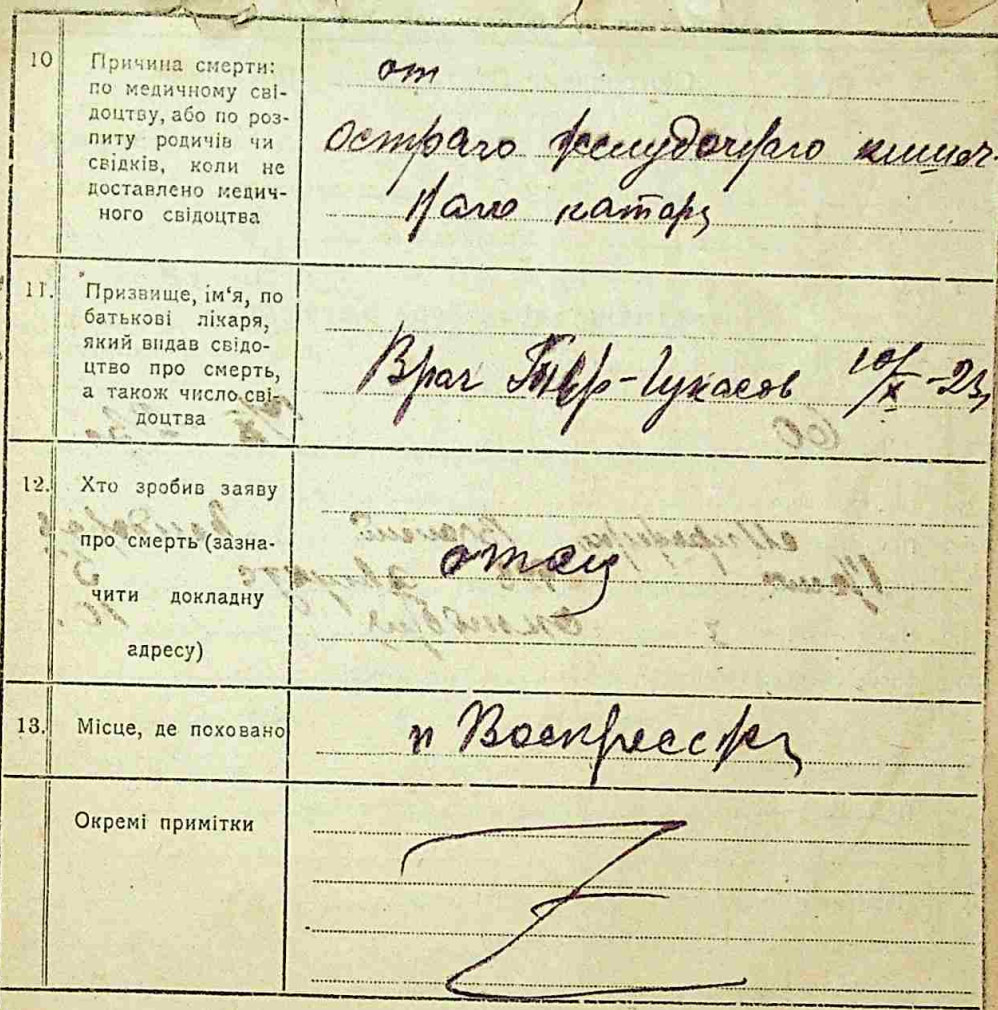 10
Причина смерти:
по медичному сві-
доцтву, або по роз-
питу родичів чи
свідків, коли не
доставлено медич-
ного свідоцтва
от
остраго желудочнаго кишеч-
наго катара
11.
Призвище, ім‘я, по
батькові лікаря,
який видав свідо-
цтво про смерть,
а також число сві-
доцтва
Врач Тер-Гукасов 10/X -23
12.
Хто зробив заяву
про смерть (зазна-
чити докладну
адресу)
отец
13.
Місце, де поховано
п Воскресенка
Окремі примітки